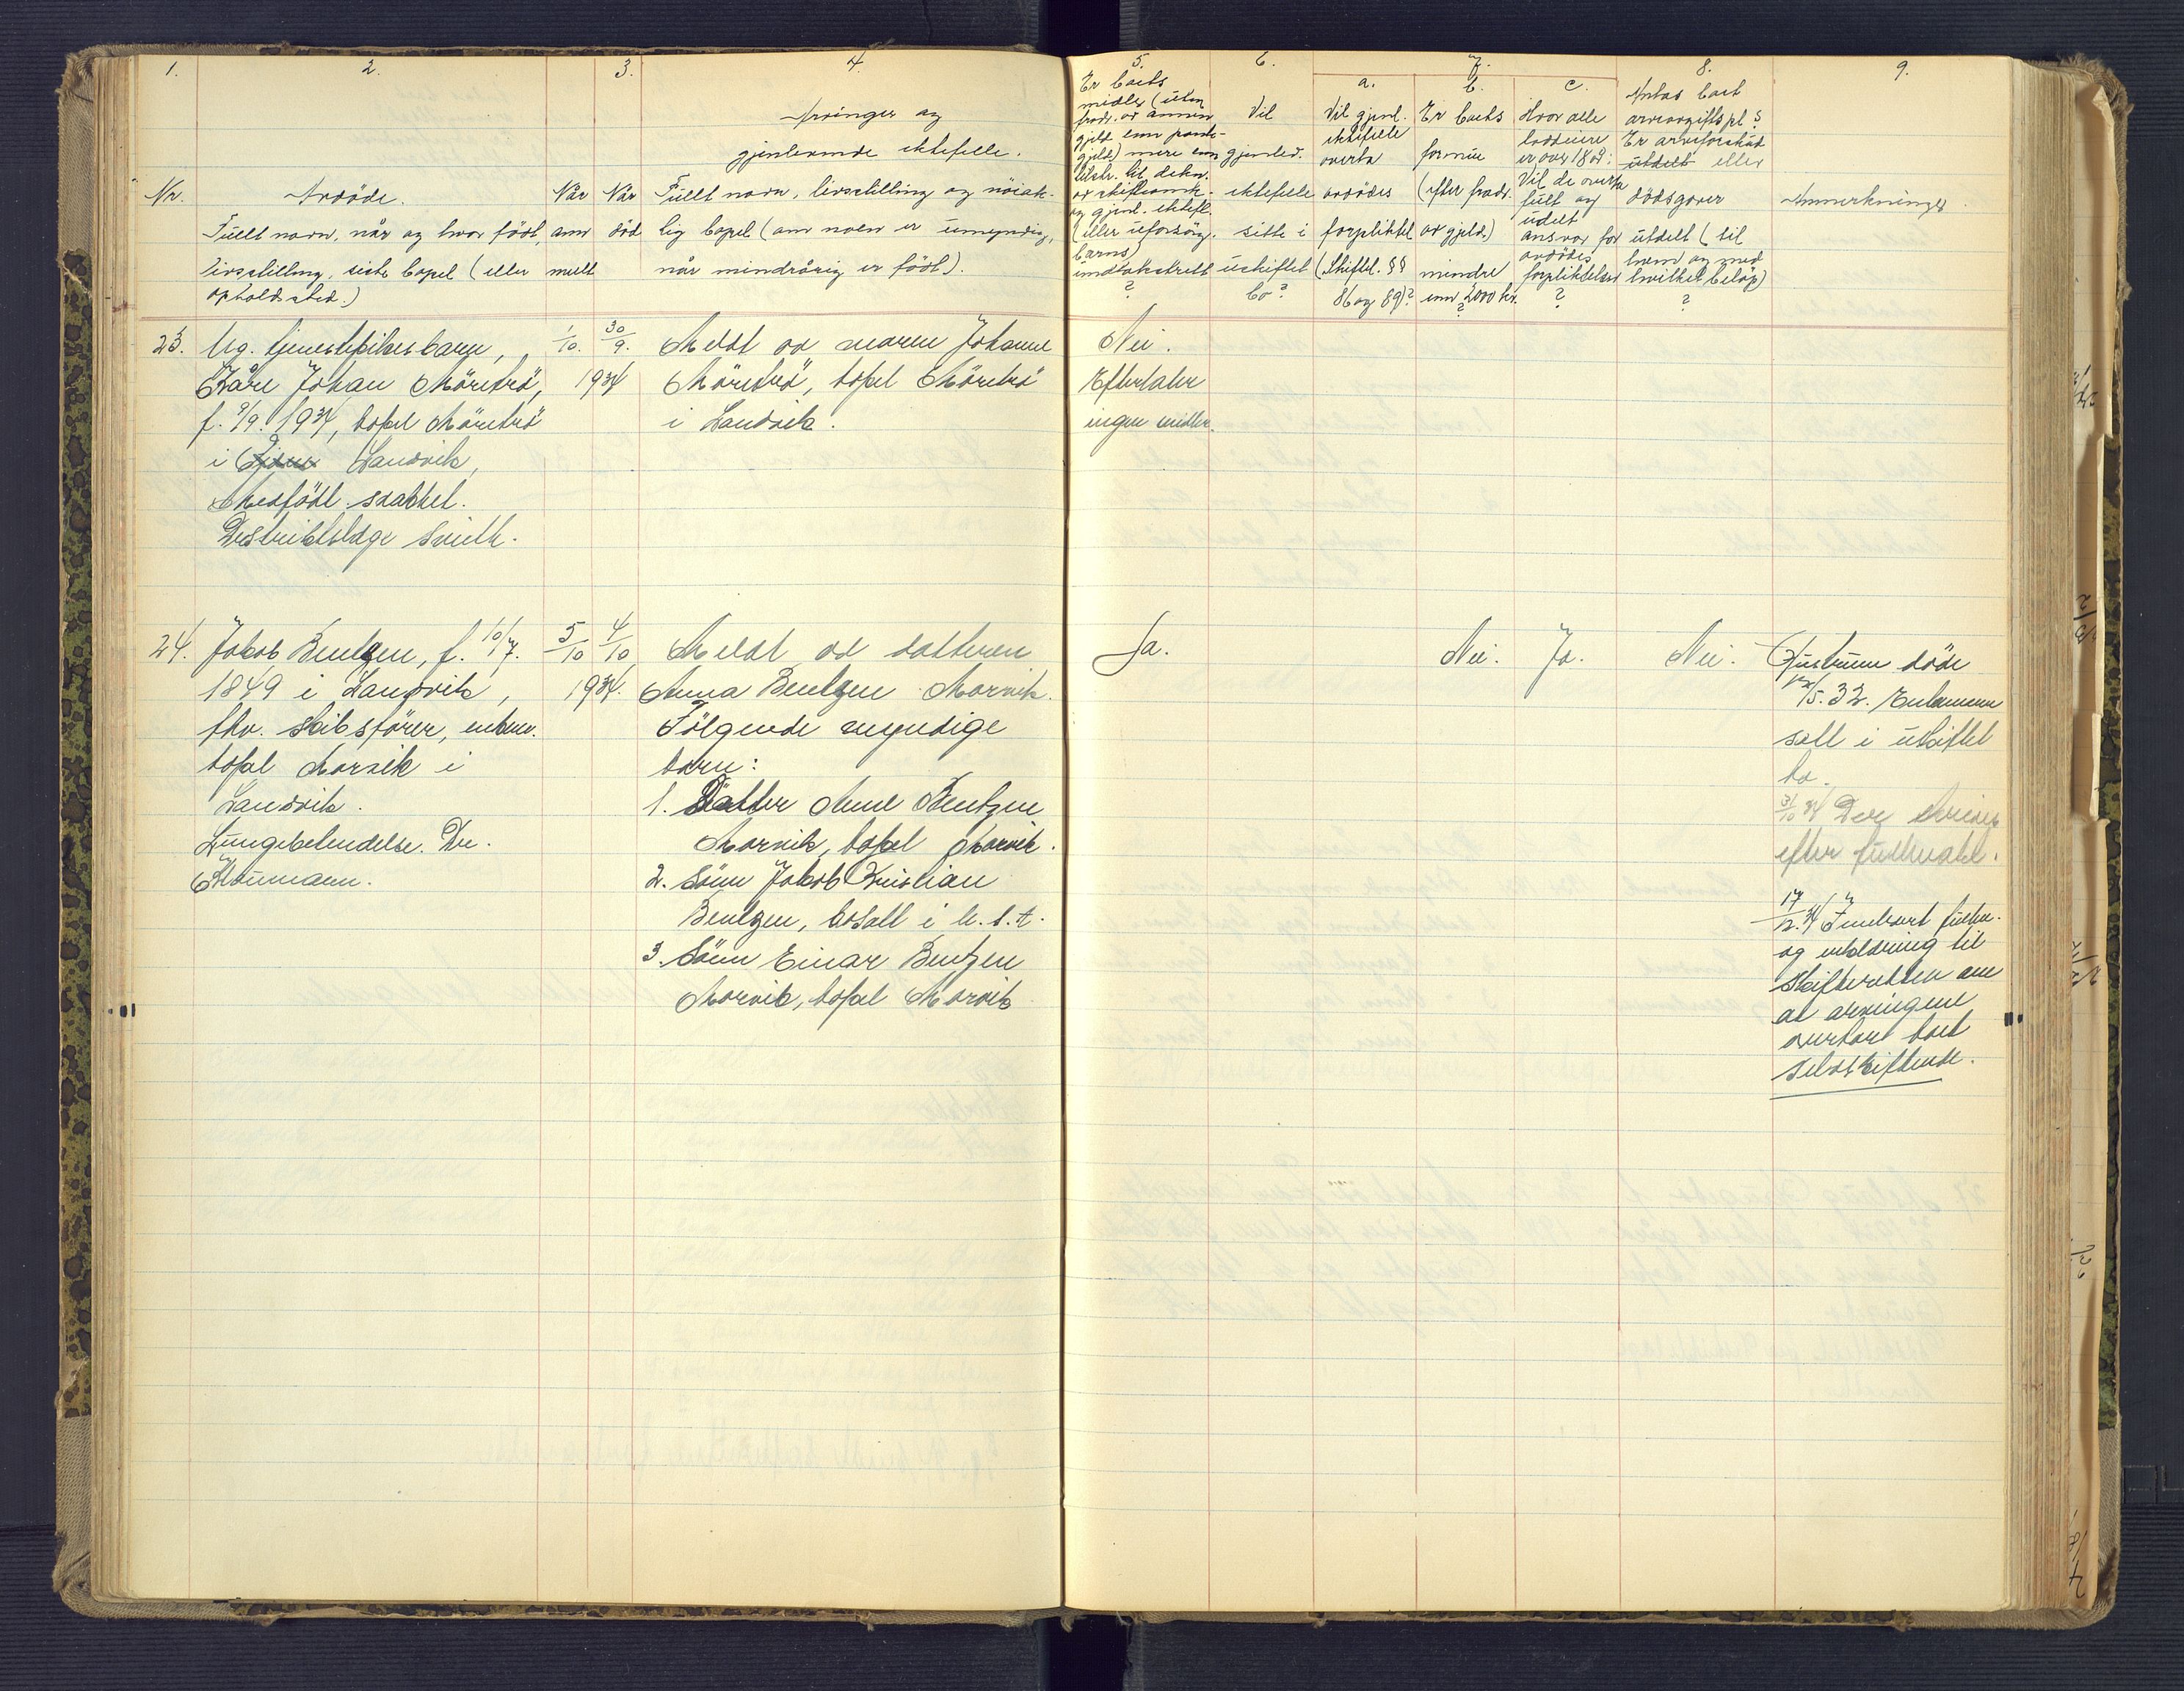 1.
2.
3.
4.
Arvinger og
gjenlevende ektefelle.
Nr.
Avdöde.
Når
Når
Fullt navn, livsstilling og nöiak-
Fullt navn, når og hvor födt,
anm
död
tig bopel (om noen er umyndig,
livsstilling, siste bopel (eller
meldt
når mindreårig er födt).
opholdssted.)
23.
Ug. tjenestepikes barn,
1/10.
30/9.
Meldt av moren Johanne
Kåre Johan Möretrö,
1934
Möretrö, bopel Möretrö
f. 9/9. 1934, bopel Möretrö
i Landvik.
i Landvik,
Medfödt svakhet.
Distriktslæge Smith.
24.
Jakob Bentzen, f. 10/7.
5/10
4/10
Meldt av datteren
1849 i Landvik,
1934.
Anna Bentzen Morvik.
fhv. skibsförer, enkem.
Fölgende myndige
bopel Morvik i
barn:
Landvik.
1. Datter Anne Bentzen
Lungebetendelse. Dr.
Morvik, bopel Morvik.
2. Sönn Jakob Kristian
Bentzen, bosatt i U.S.A.
3. Sönn Einar Bentzen
Morvik, bopel Morvik
5.
6.
7.
8.
9.
Er boets
midler (uten
fradr. av annen
gjeld enn pante-
gjeld) mere enn
tilstr. til dekn.
av skifteomk.
og gjenl. ektefl.
(eller uforsörg.
barns)
undtaksrett
?
Vil
gjenlev.
ektefelle
sitte i
uskiftet
bo?
a.
Vil gjenl.
ektefelle
overta
avdödes
forpliktel
(Skiftel. §§
86 og 89)?
b.
Er boets
formue
(efter fradr.
av gjeld)
mindre
enn 2000 kr.
?
c.
Hvor alle
loddeiere
er over 18 år:
Vil de overta
fult og
udelt
ansvar for
avdödes
forpliktelser
?
Antas boet
arveavgiftspl.?
Er arveforskud
utdelt eller
dödsgaver
utdelt (til
hvem og med
hvilket belöp)
?
Anmerkninger.
Nei.
Efterlater
ingen midler.
Ja.
Nei.
Ja.
Nei.
Hustruen döde
/5. 32. Enkemannen
satt i uskiftet
bo.
31/10 34
efter fullmakt.
17/12. 34 Innlevert fullm.
og melding til
skifteretten om
at arvingene
overtar boet
selvskiftende.